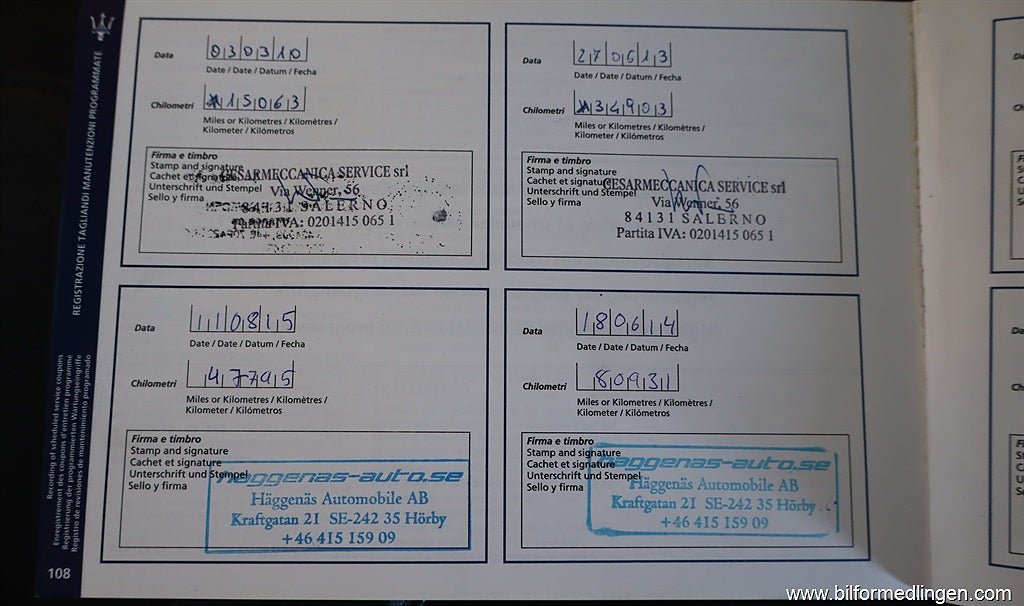 REGISTRAZIONE TAGLIANDI MANUTENZIONI PROGRAMMATE
Recording of scheduled service coupons
Enregistrement des coupons d'entretien programmé
Registrierung der programmierten Wartungseingriffe
Registro de revisiones de mantenimiento programado
108
Data
030310
Date / Date / Datum / Fecha
Chilometri
15063
Miles or Kilometres / Kilomètres /
Kilometer / Kilómetros
Firma e timbro
Stamp and signature
Cachet et signature
Unterschrift und Stempel
Sello y firma
CESARMECCANICA SERVICE srl
Via Wenner, 56
84131 SALERNO
Partita IVA: 0201415 065 1
Data
270513
Date / Date / Datum / Fecha
Chilometri
34903
Miles or Kilometres / Kilomètres /
Kilometer / Kilómetros
Firma e timbro
Stamp and signature
Cachet et signature
Unterschrift und Stempel
Sello y firma
CESARMECCANICA SERVICE srl
Via Wenner, 56
84131 SALERNO
Partita IVA: 0201415 065 1
Data
110815
Date / Date / Datum / Fecha
Chilometri
47795
Miles or Kilometres / Kilomètres /
Kilometer / Kilómetros
Firma e timbro
Stamp and signature
Cachet et signature
Unterschrift und Stempel
Sello y firma
haggenas-auto.se
Häggenäs Automobile AB
Kraftgatan 21 SE-242 35 Hörby
+46 415 159 09
Data
180614
Date / Date / Datum / Fecha
Chilometri
80931
Miles or Kilometres / Kilomètres /
Kilometer / Kilómetros
Firma e timbro
Stamp and signature
Cachet et signature
Unterschrift und Stempel
Sello y firma
haggenas-auto.se
Häggenäs Automobile AB
Kraftgatan 21 SE-242 35 Hörby
+46 415 159 09
www.bilformedlingen.com